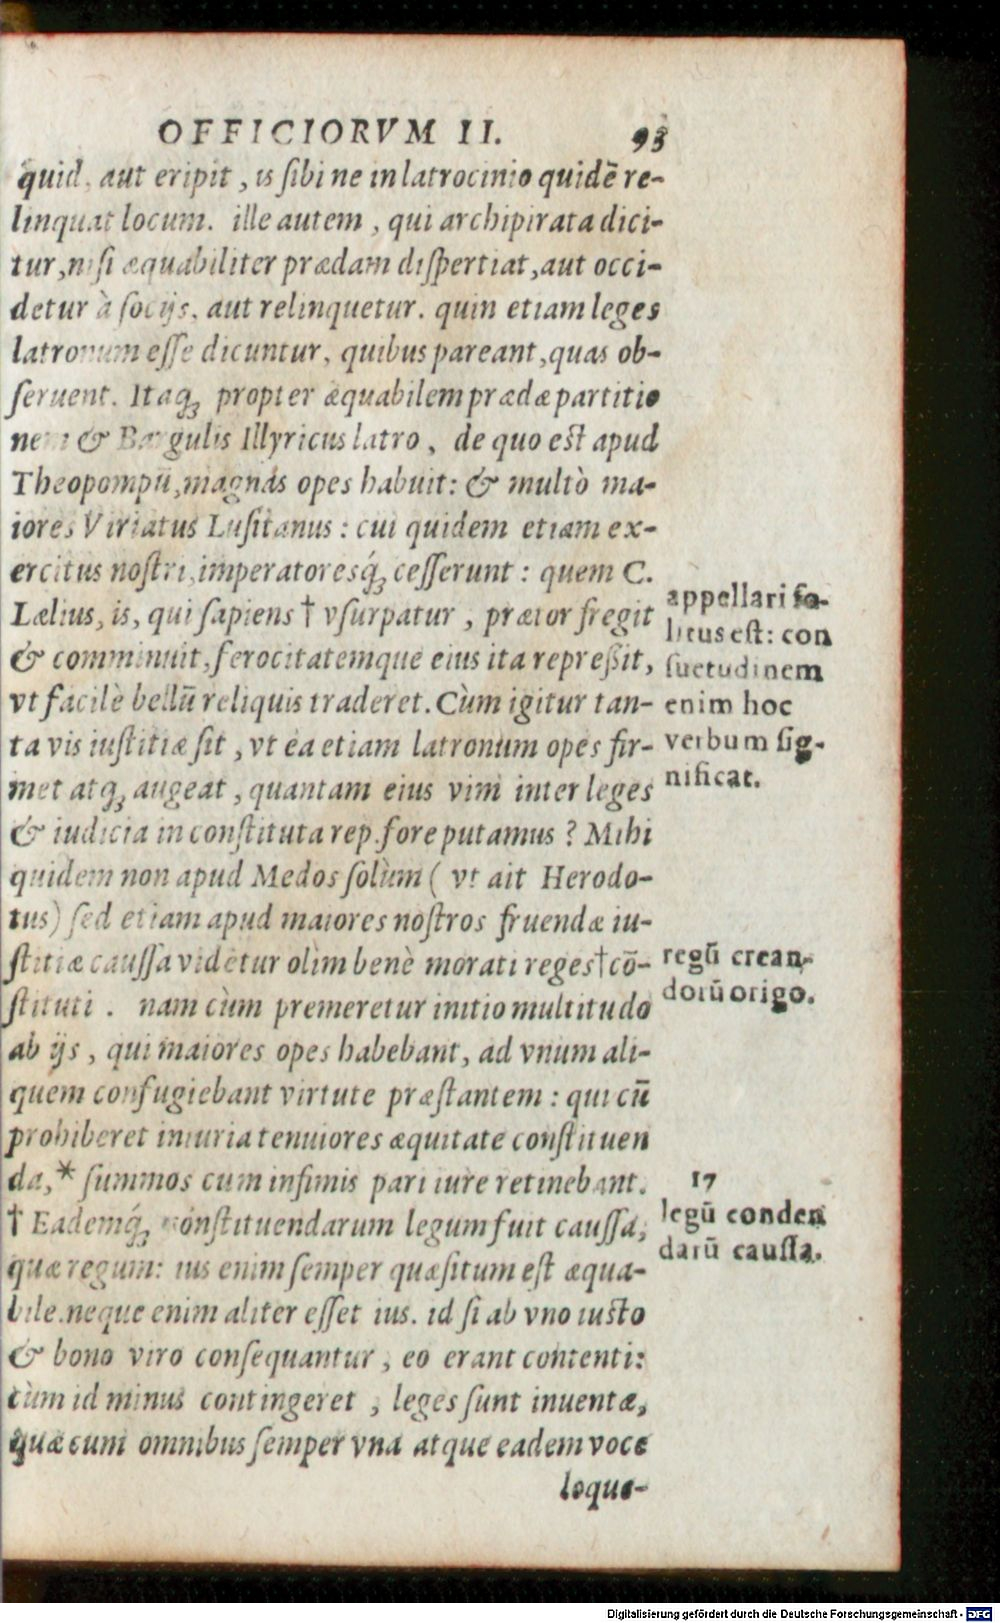 OFFICIORVM II. 93
quid, aut eripit, is ſibi ne in latrocinio quidẽ re-
linquat locum. ille autem, qui archipirata dici-
tur, niſi æquabiliter prædam diſpertiat, aut occi-
detur à ſocijs, aut relinquetur. quin etiam leges
latronum eſſe dicuntur, quibus pareant, quas ob-
ſeruent. Itaqꝫ propter æquabilem prædæ partitio
nem & Bargulis Illyricus latro, de quo eſt apud
Theopompũ, magnas opes habuit: & multò ma-
iores Viriatus Luſitanus: cui quidem etiam ex-
ercitus noſtri, imperatoresq́ꝫ ceſſerunt: quem C.
Lælius, is, qui ſapiens † vſurpatur, prætor fregit
& comminuit, ferocitatemque eius ita repreſsit,
vt facilè bellũ reliquis traderet. Cùm igitur tan-
ta vis iuſtitiæ ſit, vt ea etiam latronum opes fir-
met atqꝫ augeat, quantam eius vim inter leges
& iudicia in conſtituta rep. fore putamus? Mihi
quidem non apud Medos ſolùm (vt ait Herodo-
tus) ſed etiam apud maiores noſtros fruendæ iu-
ſtitiæ cauſſa videtur olìm benè morati reges † cõ-
ſtituti. nam cùm premeretur initio multitudo
ab ijs, qui maiores opes habebant, ad vnum ali-
quem confugiebant virtute præſtantem: qui cũ
prohiberet iniuria tenuiores æquitate conſtituen
da, * ſummos cum infimis pari iure retinebant.
† Eademq́ꝫ conſtituendarum legum fuit cauſſa,
quæ regum: ius enim ſemper quæſitum eſt æqua-
bile. neque enim aliter eſſet ius. id ſi ab vno iuſto
& bono viro conſequantur, eo erant contenti:
cùm id minus contingeret, leges ſunt inuentæ,
quæ cum omnibus ſemper vna atque eadem voce
loque-
appellari ſo-
litus eſt: con
ſuetudinem
enim hoc
verbum ſig-
nificat.
regũ crean-
dorũ origo.
17
legũ conden
darũ cauſſa.
Digitalisierung gefördert durch die Deutsche Forschungsgemeinschaft - DFG